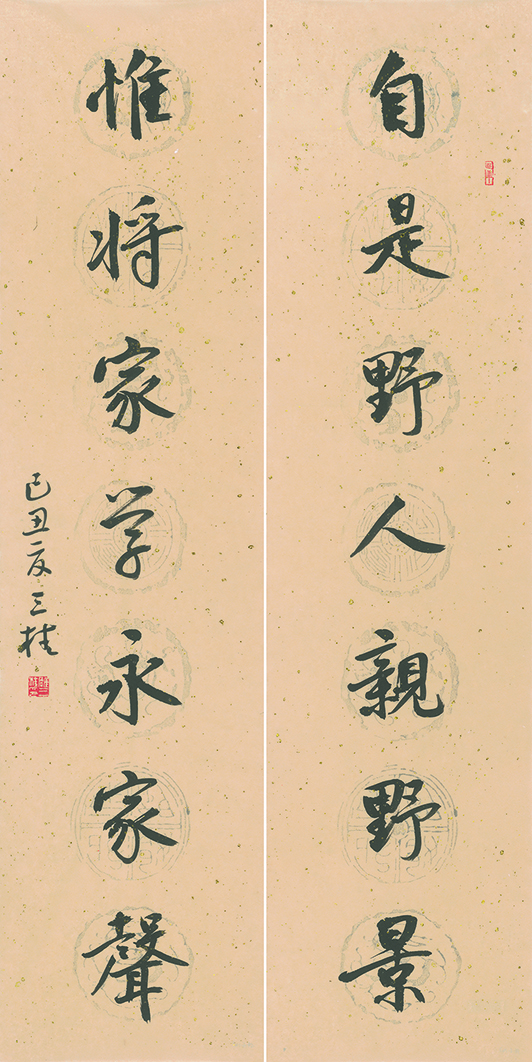 自是野人親野景
惟将家学永家聲
己丑夏三桂